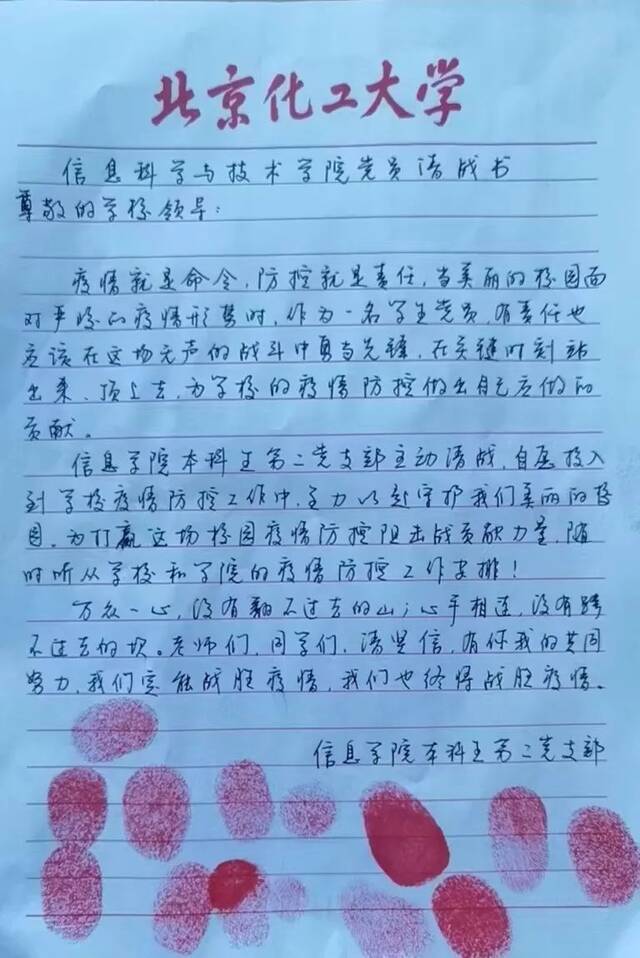 北京化工大学
信息科学与技术学院党员请战书
尊敬的学校领导：
疫情就是命令，防控就是责任，当美丽的校园面
对严峻的疫情形势时，作为一名学生党员，有责任也
应该在这场无声的战斗中勇当先锋，在关键时刻站
出来、顶上去，为学校的疫情防控做出自己应做的
贡献。
信息学院本科生第二党支部主动请战，自愿投入
到学校疫情防控工作中，全力以赴守护我们美丽的校
园，为打赢这场校园疫情防控阻击战贡献力量，随
时听从学校和学院的疫情防控工作安排！
万众一心，没有翻不过去的山；心手相连，没有跨
不过去的坎。老师们，同学们，请坚信，有你我的共同
努力，我们定能战胜疫情，我们也终将战胜疫情。
信息学院本科生第二党支部